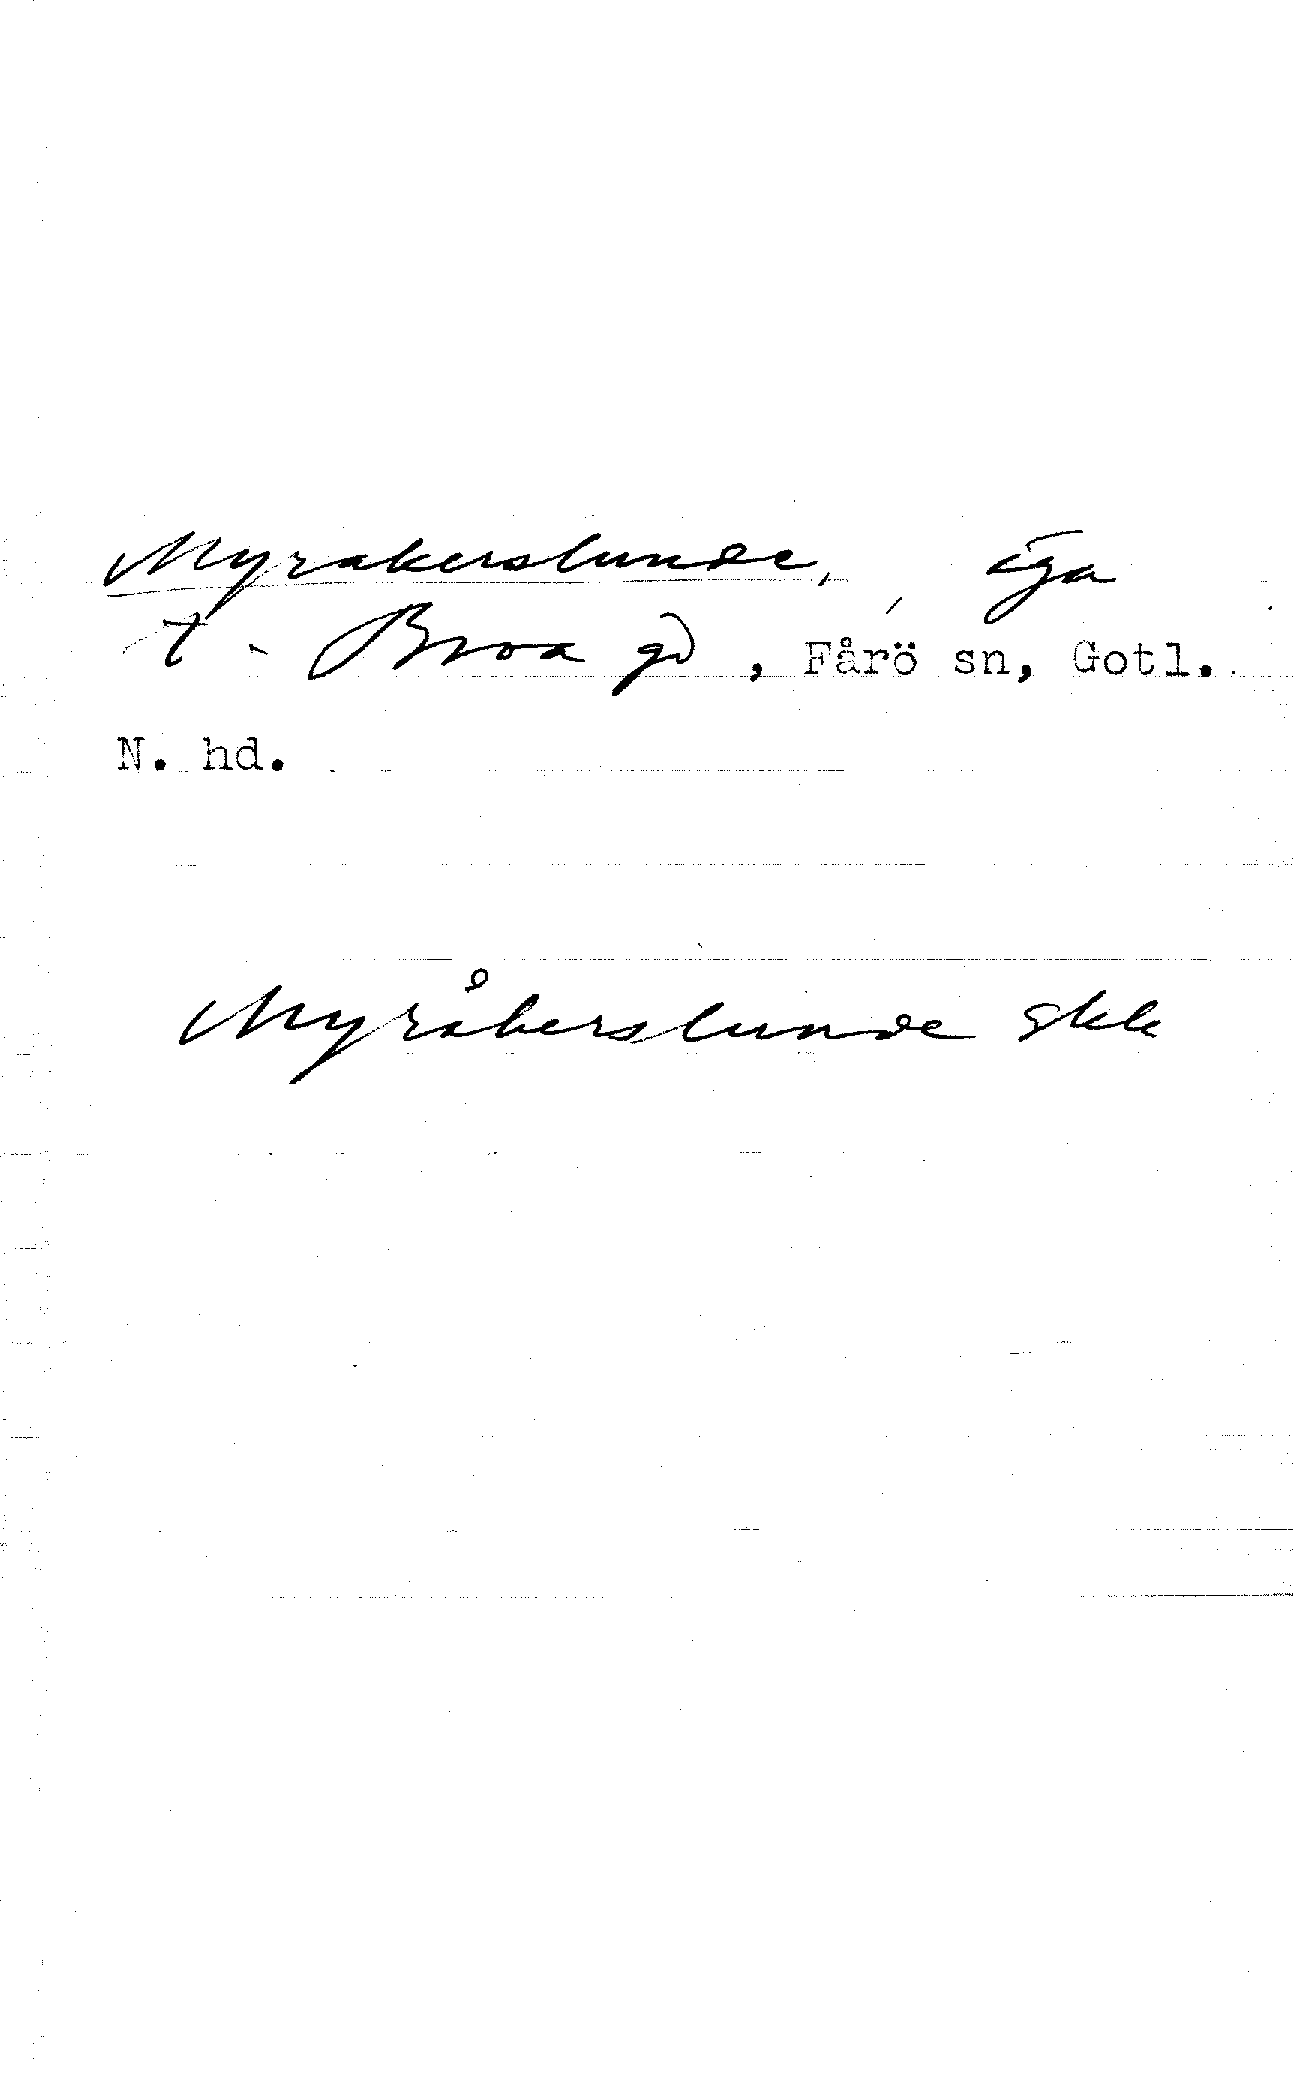 Myrakerslunde, äga
t. Broa gd, Fårö sn, Gotl.
N. hd.
Myråkerslunde Skk